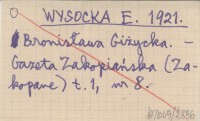 WYSOCKA E. 1921.
Bronisława Giżycka. -
Gazeta Zakopiańska (Za-
kopane) t. 1, nr 8.